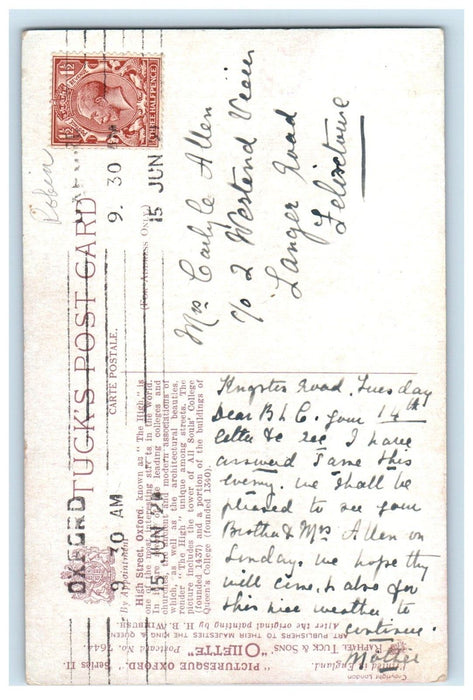 THREE HALFPENCE
OXFORD
9.30 AM
15 JUN
OXFORD
9.30 AM
15 JUN 26
Robin
TUCK'S POST CARD
CARTE POSTALE.
(FOR ADDRESS ONLY)
By Appointment
Mrs Carlyle Allen
c/o 2 Westend View
Langer Road
Felixstowe
High Street, Oxford, known as "The High" is
one of the most interesting streets in the world.
In it are some of the leading colleges and
churches, and the modern associations of
which, as well as the architectural beauties,
render "The High" unique among streets. The
picture includes the tower of All Souls' College
(founded 1437) and a portion of the buildings of
Queen's College (founded 1340).
Kingston Road. Tuesday
Dear B & C. your 14th
letter to see I have
answered same this
evening. we shall be
pleased to see your
Brother & Mrs Allen on
Sunday. we hope they
will come, & also for
this nice weather to
continue.
Mother
"PICTURESQUE OXFORD." Series II.
"OILETTE"
Postcard No.
After the original painting by H. B. WIMBUSH.
RAPHAEL TUCK & SONS
ART PUBLISHERS TO THEIR MAJESTIES THE KING & QUEEN
Printed in England.
Copyright London